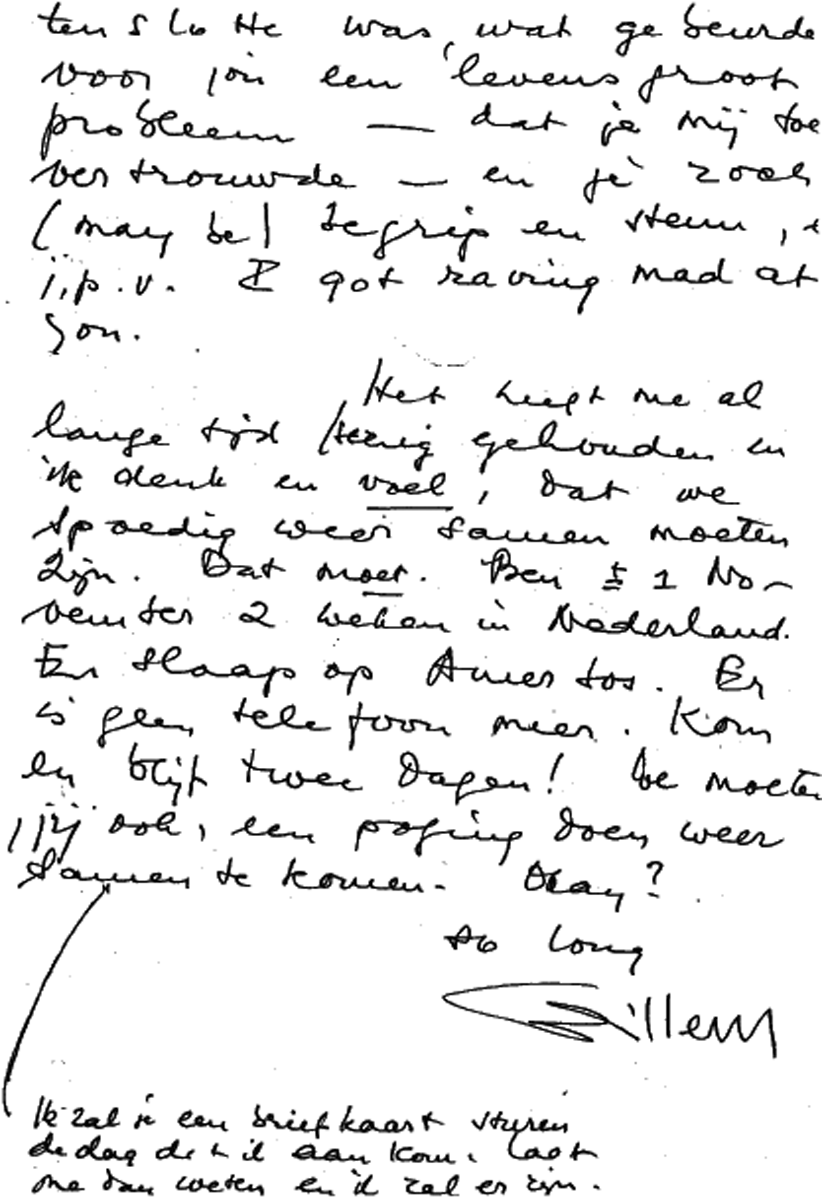 tenslotte was, wat gebeurde
voor jou een levensgroot
probleem — dat je mij toe
vertrouwde — en je zocht
(may be) begrip en steun,
i.p.v. I got raving mad at
you.
Het heeft me al
lange tijd terug gehouden en
ik denk en voel, dat we
spoedig weer samen moeten
zijn. Dat moet. Ben ± 1 No-
vember 2 weken in Nederland.
En slaap op Amer tos. Er
is geen telefoon meer. Kom
en blijf twee dagen! We moeten
, jij ook, een poging doen weer
samen te komen. Okay?
so long
Willem
Ik zal je een briefkaart sturen
de dag dat ik aan kom. Laat
me dan weten en ik zal er zijn.